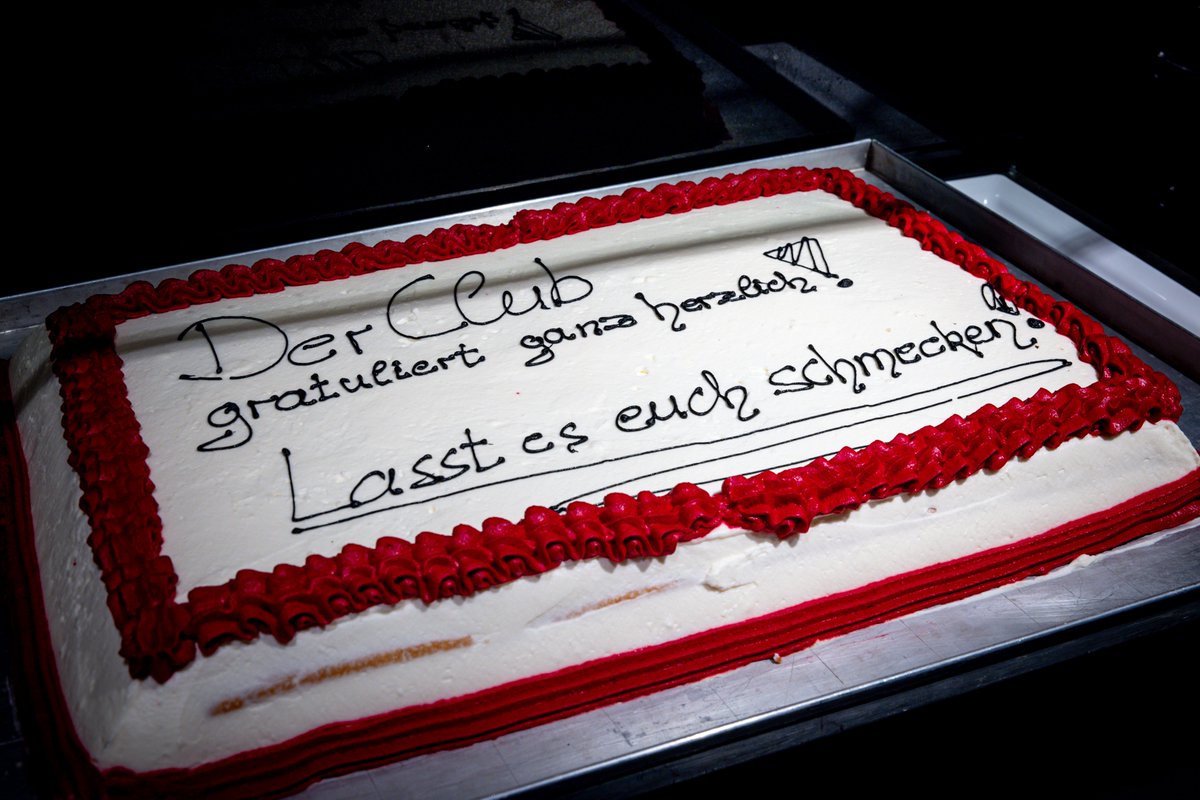 Der Club
gratuliert ganz herzlich!
Lasst es euch schmecken!